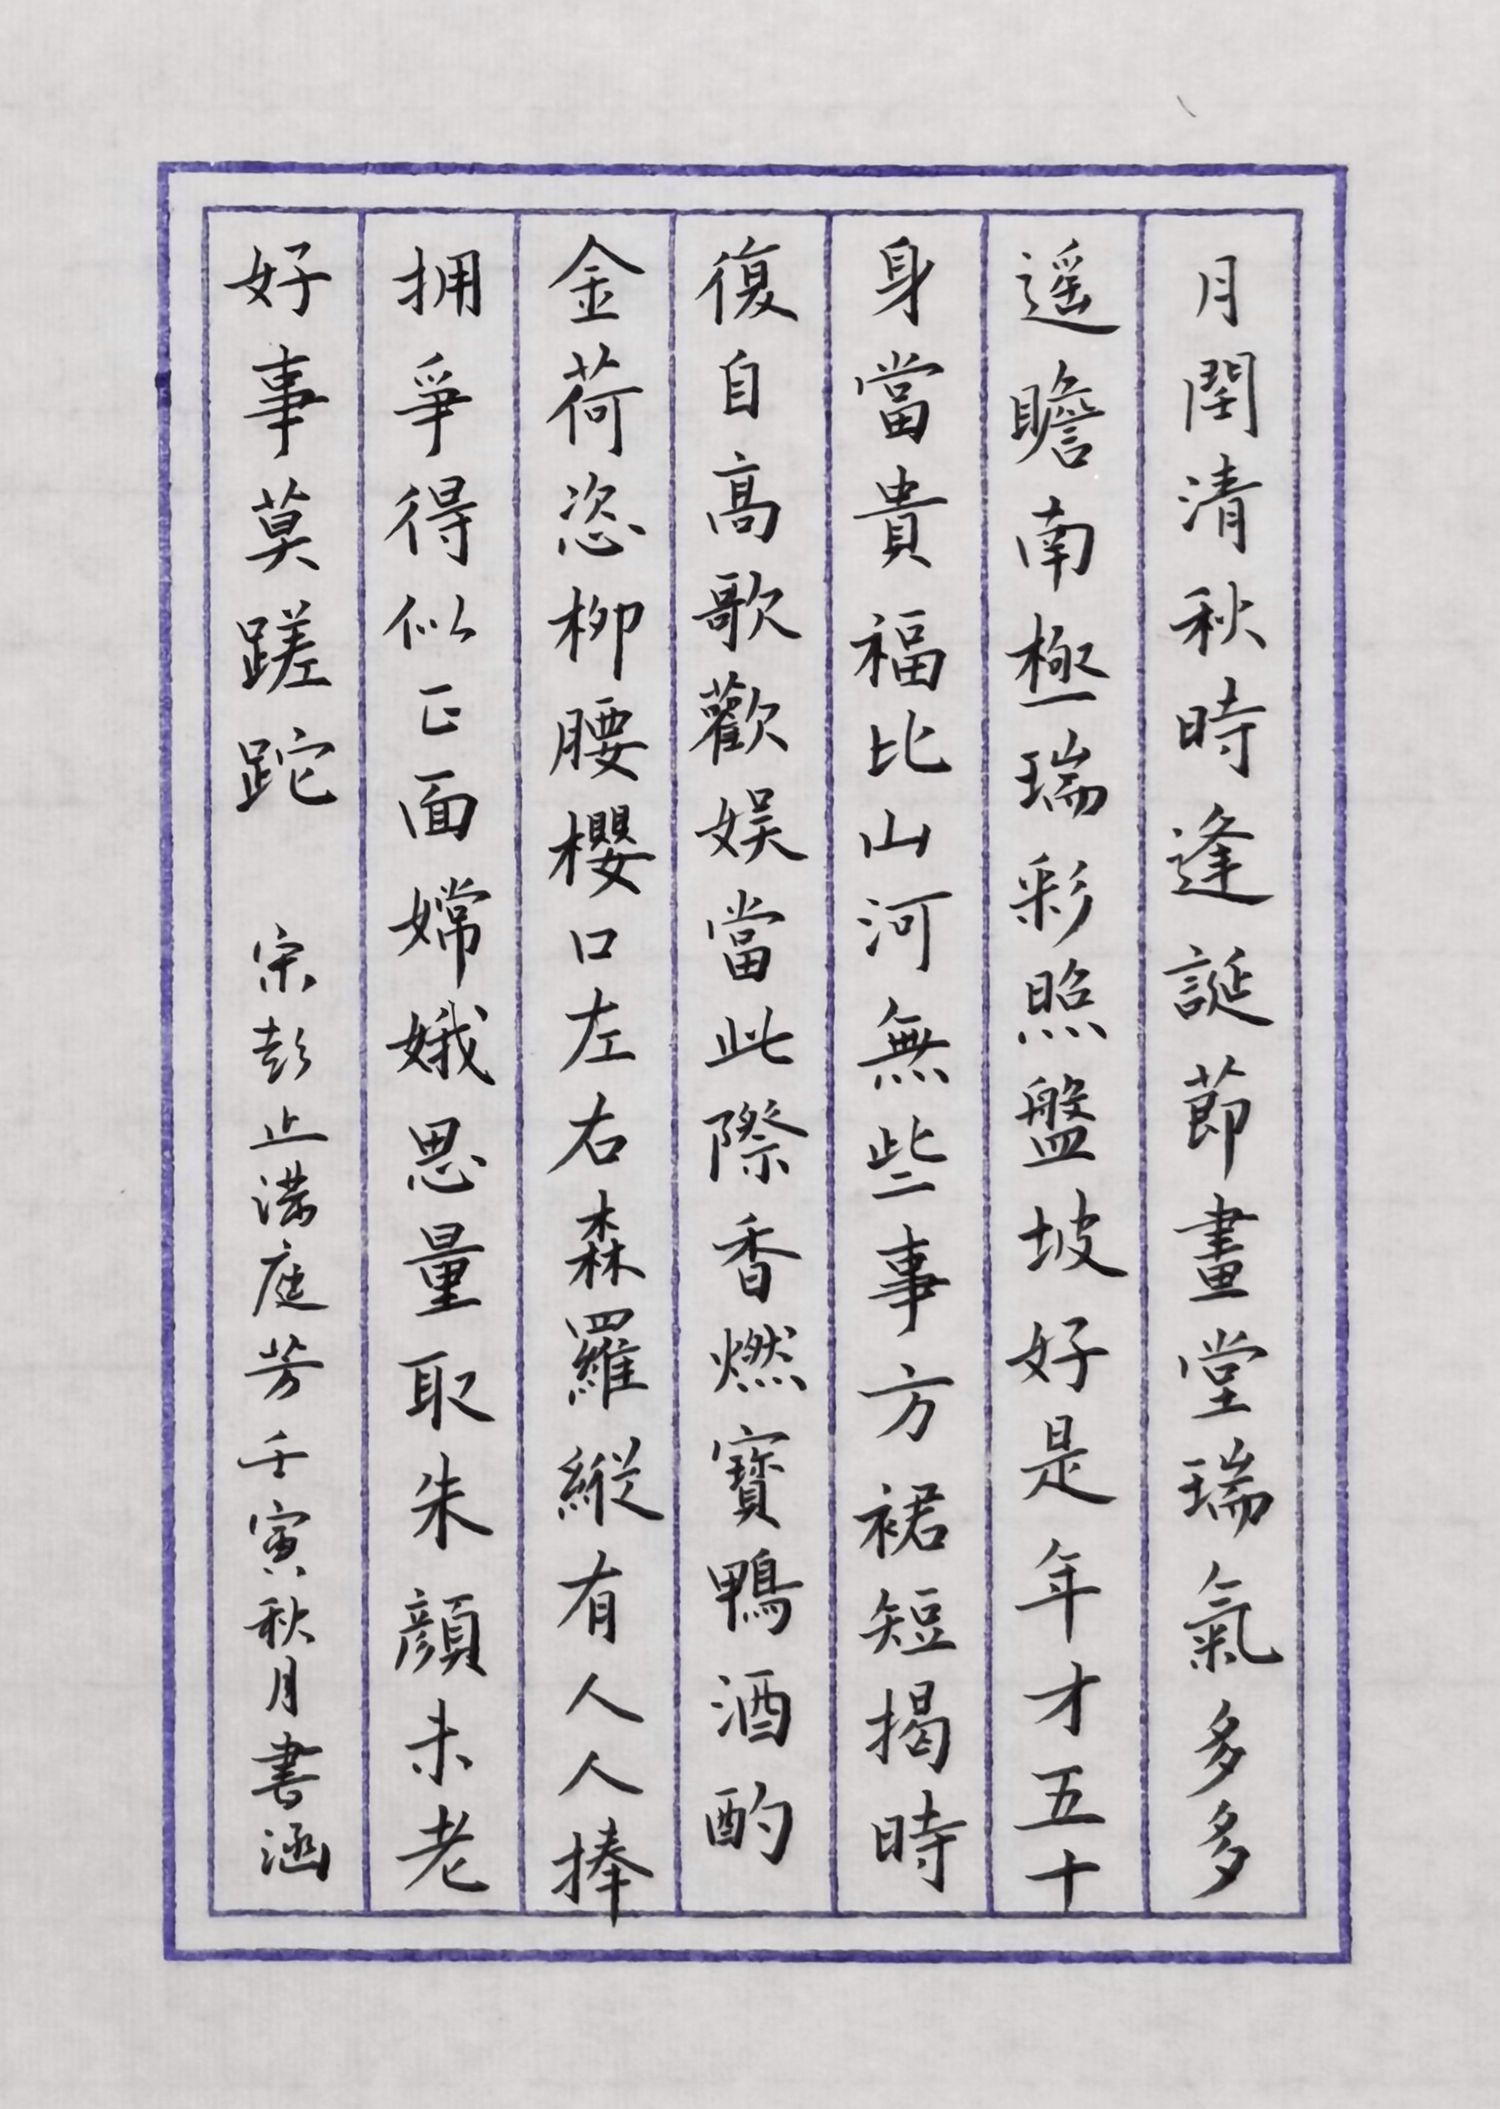 月閏清秋時逢誕節畫堂瑞氣多多
遥瞻南極瑞彩照盤坡好是年才五十
身當貴福比山河無些事方裙短揭時
復自高歌歡娱當此際香燃寶鴨酒酌
金荷恣柳腰櫻口左右森羅縱有人人捧
拥爭得似正面嫦娥思量取朱顔未老
好事莫蹉跎 宋彭止满庭芳壬寅秋月書涵